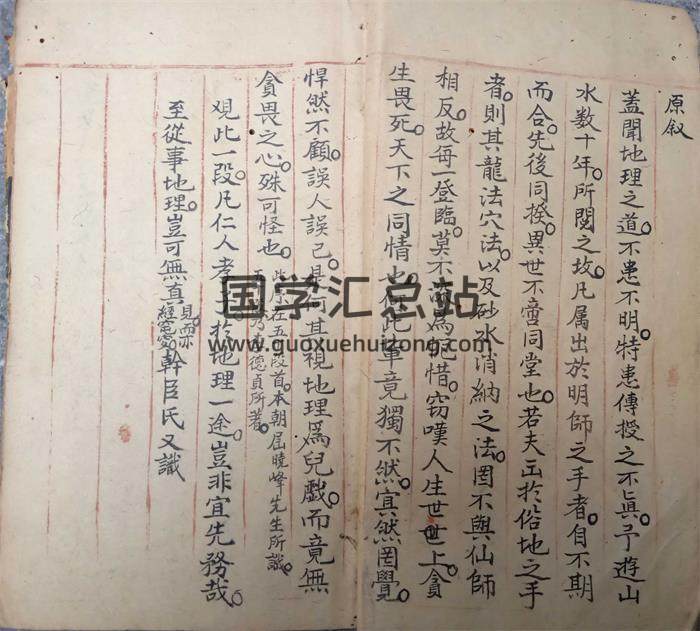 原叙
蓋聞地理之道。不患不明。特患傳授之不眞。予遊山
水数十年。所閱之坟。凡属出於明師之手者。自不期
而合。先後同揆。異世不啻同堂也。若夫玉於俗地之手
者。則其龍法穴法。以及砂水消納之法。罔不與仙師
相反。故每一登臨。莫不為惋惜。窃嘆人生世世上。貪
生畏死。天下之同情也。何此軰竟獨不然。寘然罔覺。
悍然不顧。誤人誤己。是何其視地理為兒戲。而竟無
貪畏之心。殊可怪也。
此序在五段首。本朝屈曉峰先生所識。
乃德貞所著。
观此一段。凡仁人孝子於地理一途。豈非宜先務哉。
至從事地理。豈可無真
見。而亦
經
幹臣氏又識
国学汇总站
www.guoxuehuizong.com